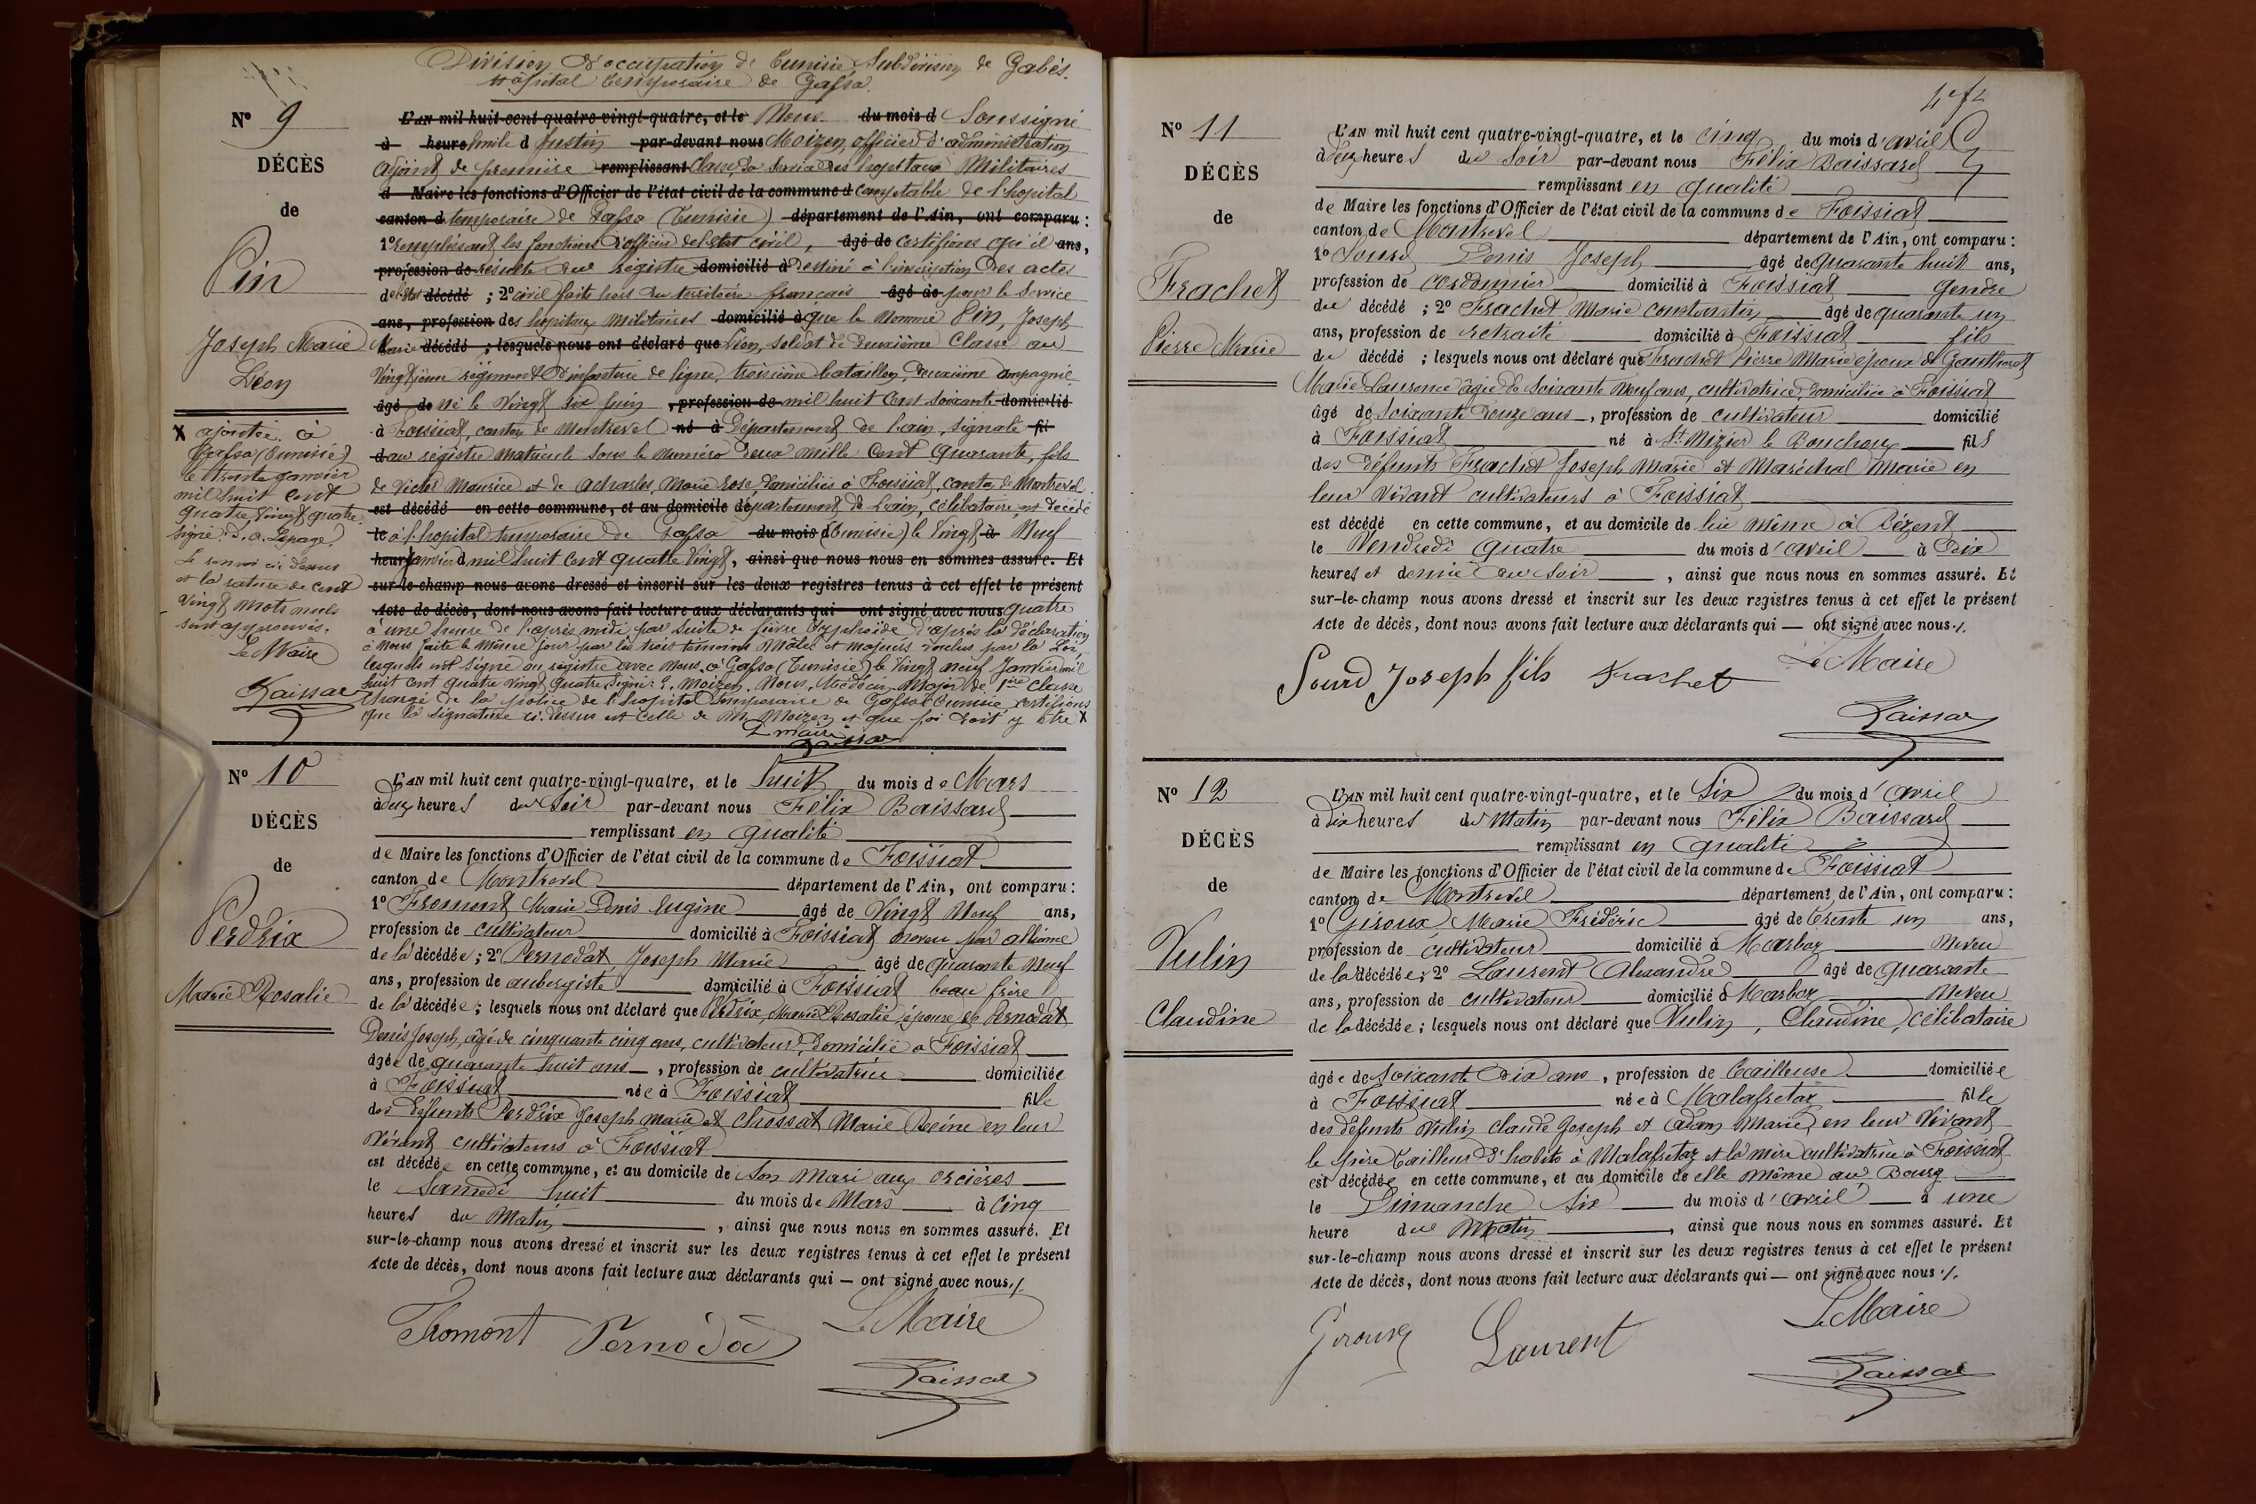 Division d'occupation de Tunisie Subdivision de Gabès.
Hôpital temporaire de Gafsa.
N° 9
DÉCÈS
de
Pin
Joseph Marie
Léon
X ajoutée. à
Gafsa (Tunisie)
le trente janvier
mil huit cent
quatre vingt quatre.
signé: D. A. Lepage.
Le renvoi ci dessus
et la rature de cent
vingt mots nuls
sont approuvés.
Le Maire
L'AN mil huit cent quatre-vingt-quatre, et le Nous du mois d Soussigné
à heure Emile d Justin par-devant nous Moizen, officier d'administration
adjoint de première remplissant classe, du service des hopitaux Militaires
d Maire les fonctions d'Officier de l'état civil de la commune d comptable de l'hopital
canton d temporaire de Gafsa (Tunisie) département de l'Ain, ont comparu :
1° remplissant les fonctions d'officier de l'état civil, âgé de certifions qu'il ans,
profession de résulte du registre domicilié à destiné à l'inscription des actes
de l'état décédé ; 2° civil faits hors du territoire français âgé de pour le service
ans, profession des hopitaux militaires domicilié à que le nommé Pin, Joseph
Marie décédé ; lesquels nous ont déclaré que Léon, soldat de deuxième classe au
Vingtième régiment d'infanterie de ligne, troisième bataillon, deuxième compagnie.
âgé de né le Vingt six juin , profession de mil huit cent soixante domicilié
à Foissiat, canton de Montrevel né à Département de l'ain, signalé fil
d au registre matricule sous le numéro deux mille cent quarante, fils
de Victor Maurice et de Acharles, Marie Rose domiciliés à Foissiat, canton de Montrevel
est décédé en cette commune, et au domicile département de l'ain, célibataire, est décédé
le à l'hopital temporaire de Gafsa du mois d (Tunisie) le Vingt à Neuf
heur janvier d mil huit cent quatre vingt, ainsi que nous nous en sommes assuré. Et
sur-le-champ nous avons dressé et inscrit sur les deux registres tenus à cet effet le présent
Acte de décès, dont nous avons fait lecture aux déclarants qui ont signé avec nous quatre
à une heure de l'après midi par suite de fièvre typhoïde d'après la déclaration
à nous faite le même jour par les trois témoins mâles et majeurs voulus par la Loi,
lesquels ont signé au registre avec nous, à Gafsa (Tunisie) le Vingt neuf Janvier mil
huit cent quatre vingt quatre. Signé: E. Moizen. Nous, Médecin Major de 1ère classe
chargé de la police de l'hopital temporaire de Gafsa Tunisie, certifions
que la signature ci-dessus est celle de Mr Moizen et que foi doit y être X
L maire
N° 10
DÉCÈS
de
Perdrix
Marie Rosalie
L'AN mil huit cent quatre-vingt-quatre, et le huit du mois de Mars
à deux heures du soir par-devant nous Félix Baissard
remplissant en qualité
de Maire les fonctions d'Officier de l'état civil de la commune de Foissiat
canton de Montrevel département de l'Ain, ont comparu :
1° Fromont Marie Denis Eugène âgé de Vingt Neuf ans,
profession de cultivateur domicilié à Foissiat neveu par alliance
de la décédée ; 2° Pernodat Joseph Marie âgé de quarante Neuf
ans, profession de aubergiste domicilié à Foissiat beau frère
de la décédée ; lesquels nous ont déclaré que Perdrix, Marie Rosalie, épouse de Pernodat
Denis Joseph, âgé de cinquante cinq ans, cultivateur, domicilié à Foissiat
âgée de quarante huit ans , profession de cultivatrice domiciliée
à Foissiat née à Foissiat fille
des défunts Perdrix Joseph Marie et Chossat Marie Reine en leur
Vivant cultivateurs à Foissiat
est décédée en cette commune, et au domicile de son mari aux orcières
le Samedi huit du mois de Mars à cinq
heures du Matin , ainsi que nous nous en sommes assuré. Et
sur-le-champ nous avons dressé et inscrit sur les deux registres tenus à cet effet le présent
Acte de décès, dont nous avons fait lecture aux déclarants qui — ont signé avec nous./.
Fromont Pernoda Le Maire
N° 11
DÉCÈS
de
Frachet
Pierre Marie
L'AN mil huit cent quatre-vingt-quatre, et le cinq du mois d'avril
à deux heures du Soir par-devant nous Félix Baissard
remplissant en qualité
de Maire les fonctions d'Officier de l'état civil de la commune de Foissiat
canton de Montrevel département de l'Ain, ont comparu :
1° Sourd Denis Joseph âgé de quarante huit ans,
profession de cordonnier domicilié à Foissiat Gendre
du décédé ; 2° Frachet Marie Constantin âgé de quarante un
ans, profession de retraité domicilié à Foissiat fils
du décédé ; lesquels nous ont déclaré que Frachet Pierre Marie époux de Gautheret
Marie Laurence âgée de Soixante Neuf ans, cultivatrice, domiciliée à Foissiat
âgé de Soixante douze ans , profession de cultivateur domicilié
à Foissiat né à St Nizier le Bouchoux fils
des défunts Frachet Joseph Marie et Maréchal Marie en
leur Vivant cultivateurs à Foissiat
est décédé en cette commune, et au domicile de lui même à Bézent
le Vendredi quatre du mois d'avril à Dix
heures et demie du soir , ainsi que nous nous en sommes assuré. Et
sur-le-champ nous avons dressé et inscrit sur les deux registres tenus à cet effet le présent
Acte de décès, dont nous avons fait lecture aux déclarants qui — ont signé avec nous./.
Le Maire
Sourd Joseph fils Frachet
N° 12
DÉCÈS
de
Vulin
Claudine
L'AN mil huit cent quatre-vingt-quatre, et le Six du mois d'avril
à dix heures du Matin par-devant nous Félix Baissard
remplissant en qualité
de Maire les fonctions d'Officier de l'état civil de la commune de Foissiat
canton de Montrevel département de l'Ain, ont comparu :
1° Giroux Marie Frédéric âgé de trente un ans,
profession de cultivateur domicilié à Marboz Neveu
de la décédée ; 2° Laurent Alexandre âgé de quarante
ans, profession de cultivateur domicilié à Marboz Neveu
de la décédée ; lesquels nous ont déclaré que Vulin, Claudine, célibataire
âgée de soixante dix ans , profession de tailleuse domiciliée
à Foissiat née à Malafretaz fille
des défunts Vulin Claude Joseph et Adam Marie, en leur Vivant
le père tailleur d'habits à Malafretaz et la mère cultivatrice à Foissiat
est décédée en cette commune, et au domicile de elle même au Bourg
le Dimanche Six du mois d'avril à une
heure du Matin , ainsi que nous nous en sommes assuré. Et
sur-le-champ nous avons dressé et inscrit sur les deux registres tenus à cet effet le présent
Acte de décès, dont nous avons fait lecture aux déclarants qui — ont signé avec nous./.
Le Maire
Giroux Laurent